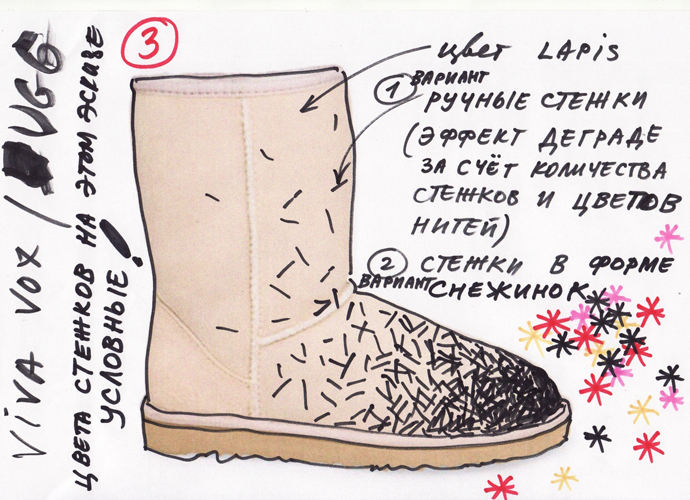 3
цвет LAPIS
1 ВАРИАНТ
РУЧНЫЕ СТЕЖКИ
(ЭФФЕКТ ДЕГРАДЕ
ЗА СЧЁТ КОЛИЧЕСТВА
СТЕЖКОВ И ЦВЕТОВ
НИТЕЙ)
2 СТЕЖКИ В ФОРМЕ
ВАРИАНТ СНЕЖИНОК
ViVA VOX / UGG
ЦВЕТА СТЕЖКОВ НА ЭТОМ ЭСКИЗЕ
УСЛОВНЫЕ!